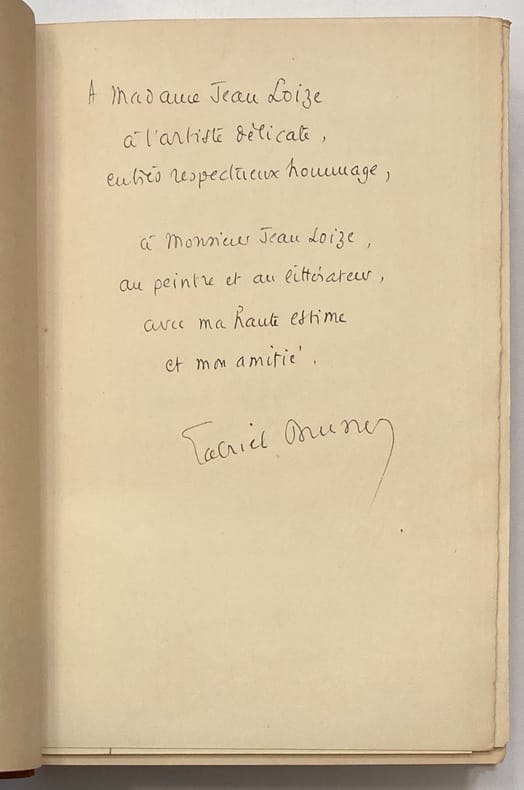 A Madame Jean Loize
à l'artiste délicate,
en très respectueux hommage,
à Monsieur Jean Loize,
au peintre et au littérateur,
avec ma haute estime
et mon amitié.
Gabriel